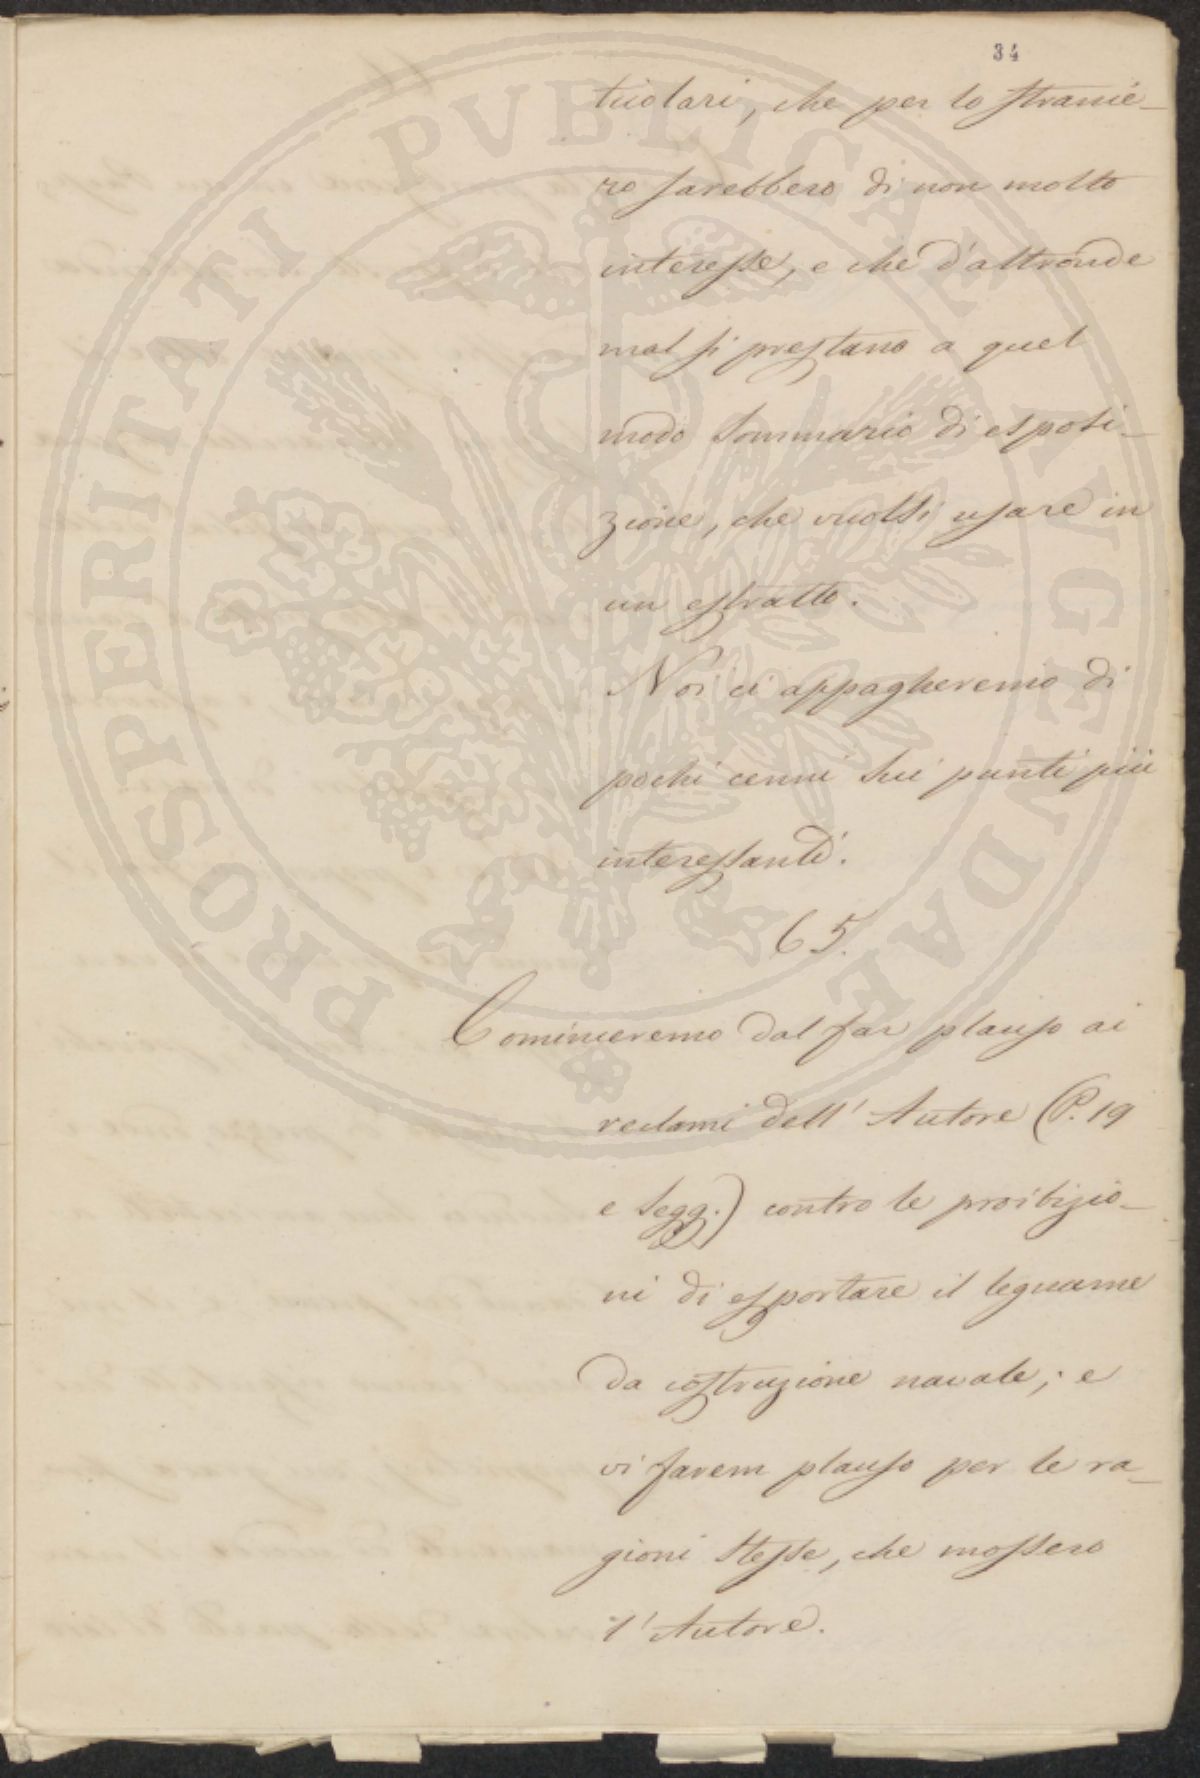 34
ticolari, che per lo stranie-
ro sarebbero di non molto
interesse, e che d'altronde
mal si prestano a quel
modo sommario di esposi-
zione, che vuolsi usare in
un estratto.
Noi ci appagheremo di
pochi cenni sui punti più
interessanti.
65.
Cominceremo dal far plauso ai
reclami dell'Autore (P. 19
e segg.) contro le proibizio-
ni di esportare il legname
da costruzione navale; e
vi farem plauso per le ra-
gioni stesse, che mossero
l'Autore.
PROSPERITATI PVBLICAE AVGENDAE